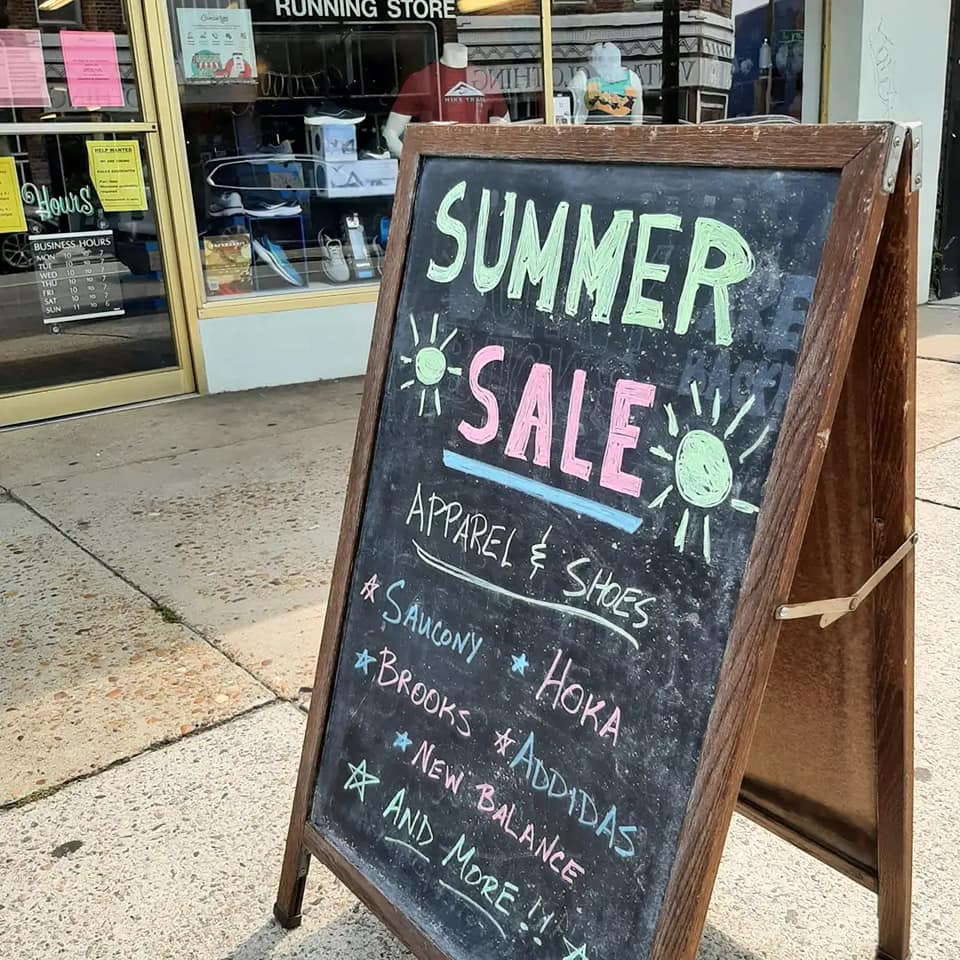 RUNNING STORE
HELP WANTED
Hours
BUSINESS HOURS
MON 10 7
TUE 10 7
WED 10 7
THU 10 7
FRI 10 7
SAT 10 7
SUN 11 6
SUMMER
SALE
APPAREL & SHOES
SAUCONY
HOKA
BROOKS
ADDIDAS
NEW BALANCE
AND MORE!!